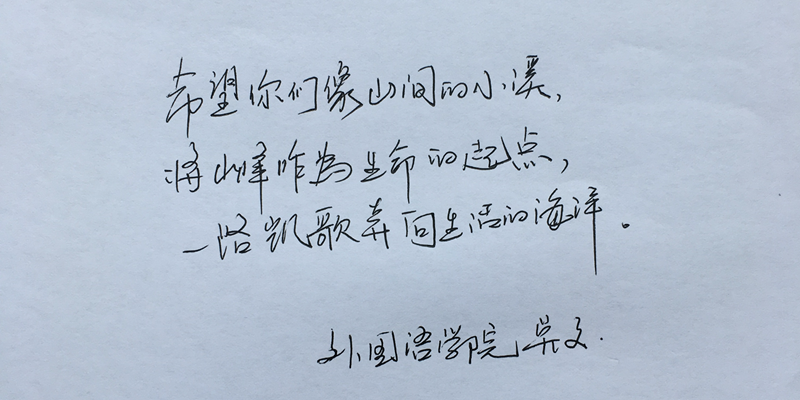 希望你们像山间的小溪，
将山峰作为生命的起点，
一路凯歌奔向生活的海洋。
外国语学院 吴文.